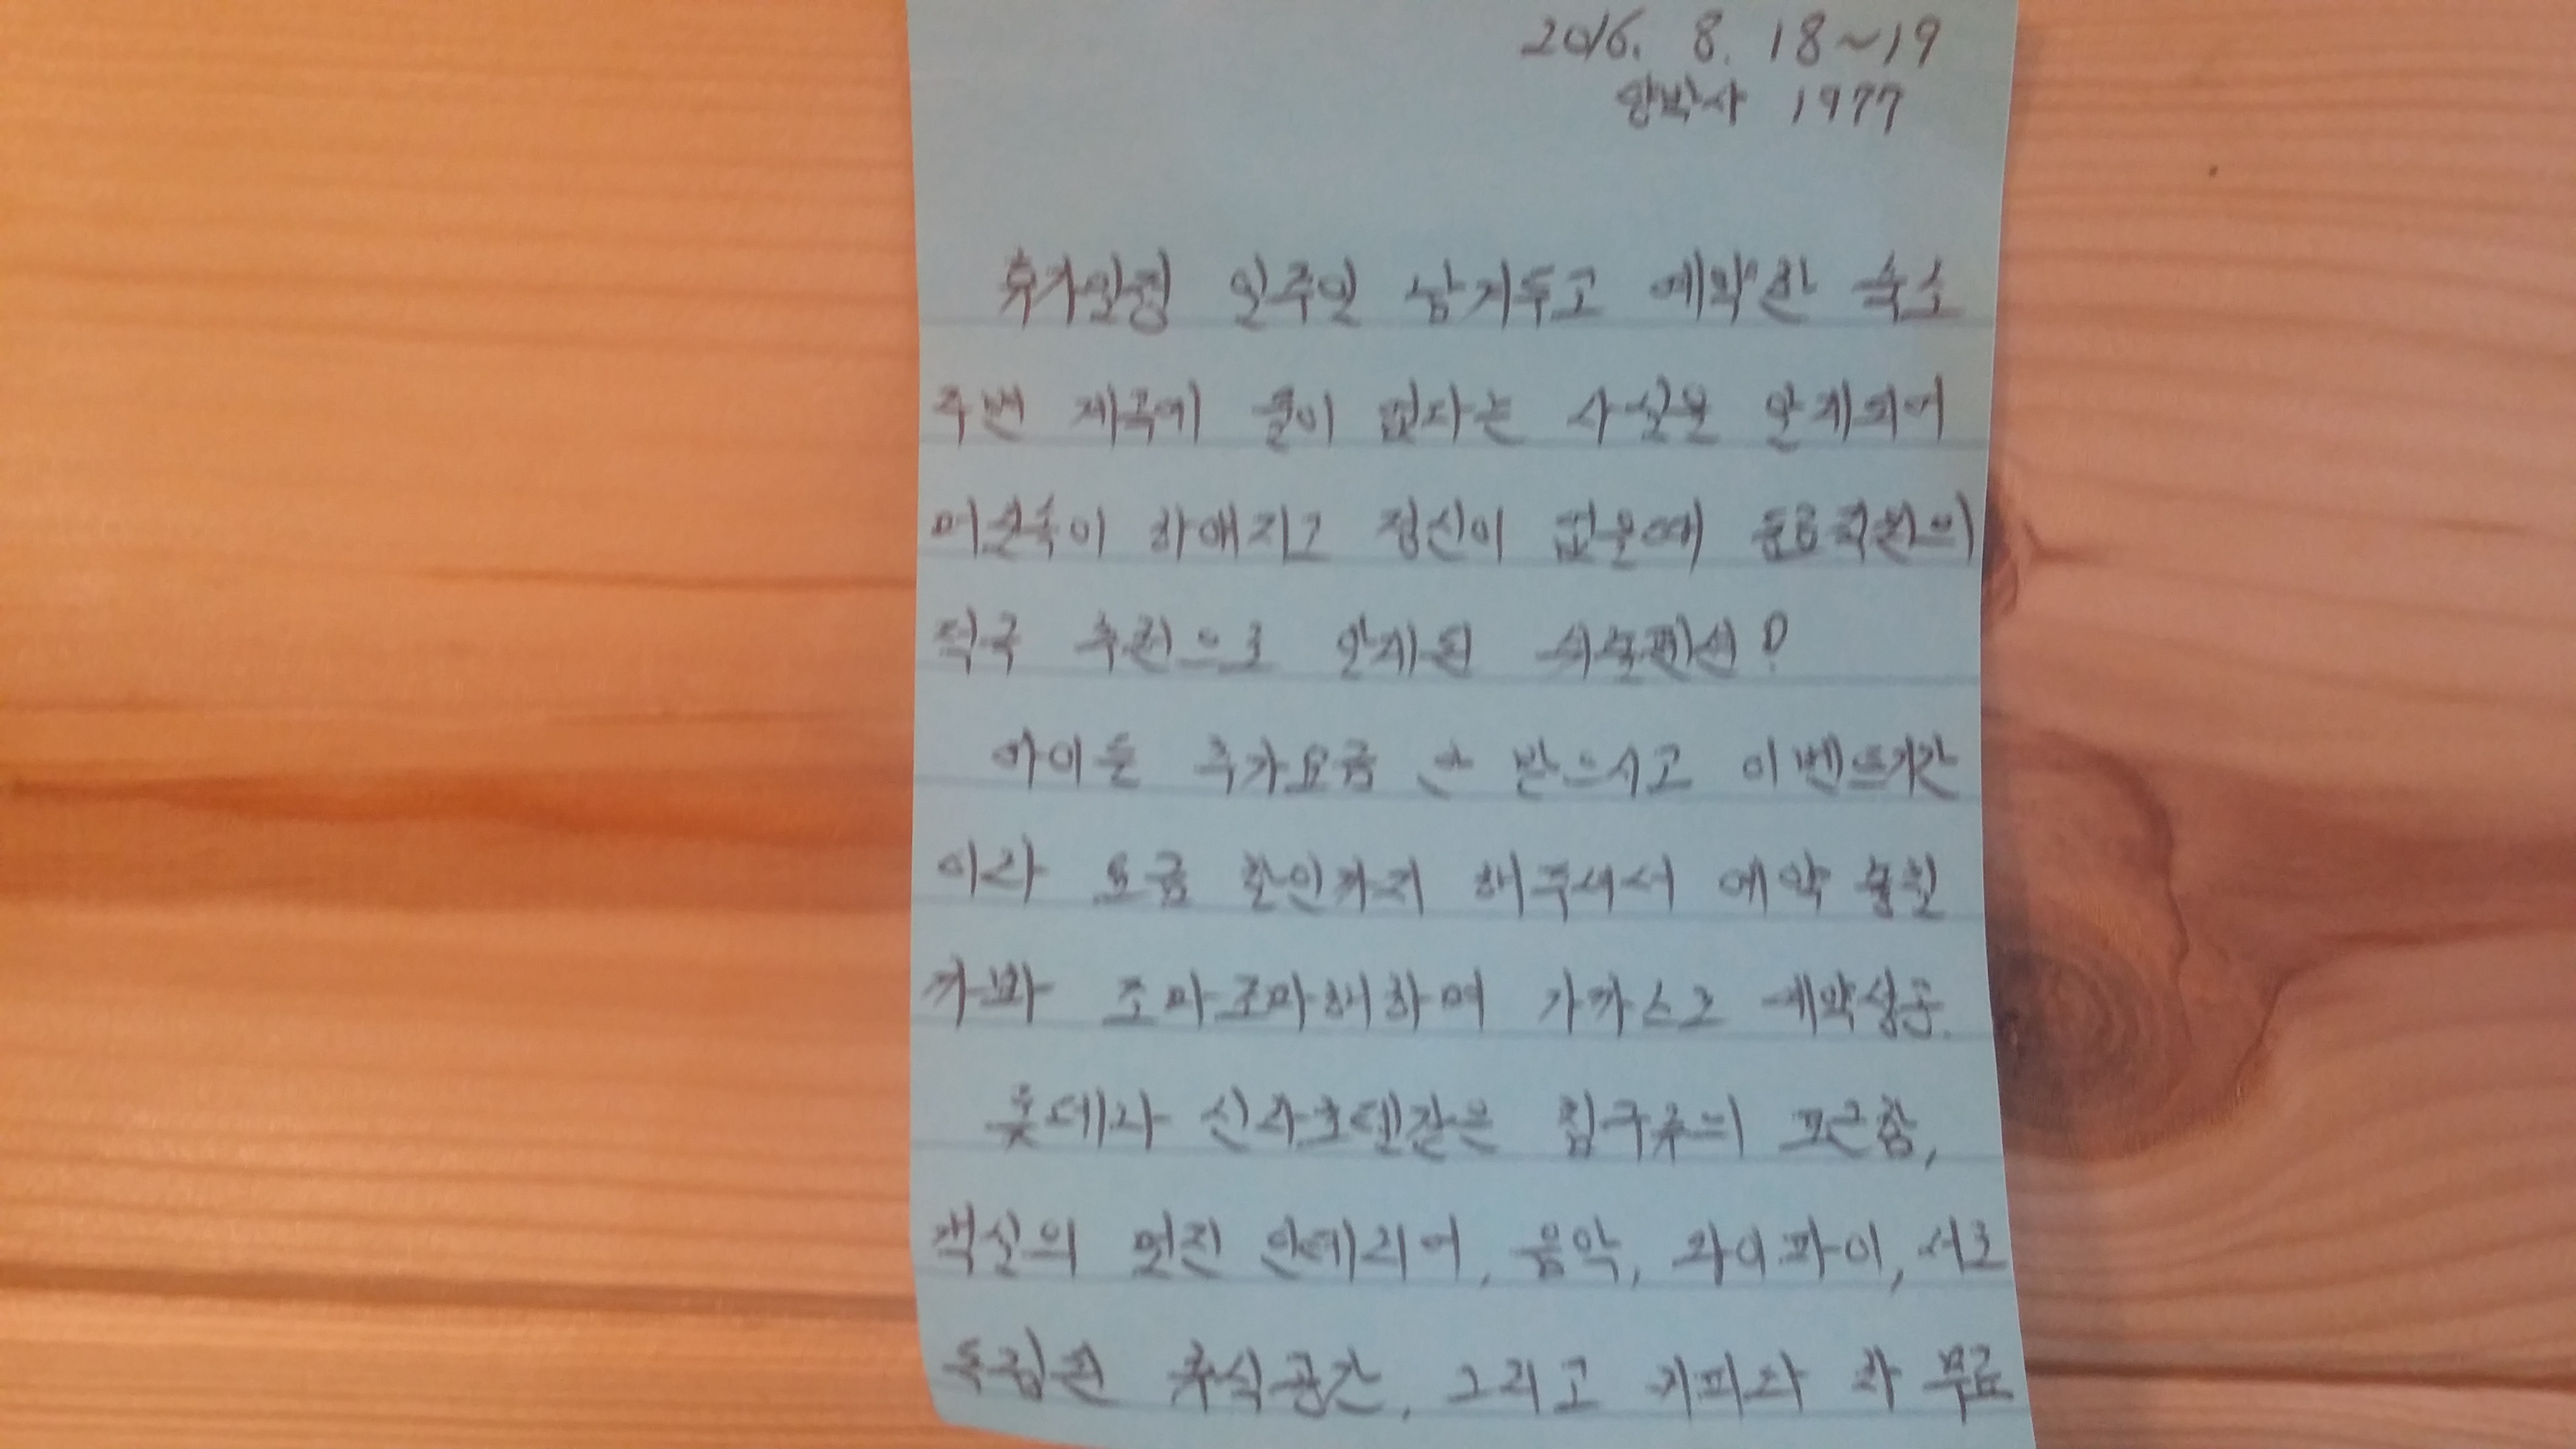 2016. 8. 18~19
양박사 1977
휴가일정 일주일 남겨두고 예약한 숙소
주변 계곡에 물이 없다는 사실을 알게되어
머릿속이 하얘지고 정신이 없을때 동료직원의
적극 추천으로 알게된
아이들 추가요금 안 받으시고 이벤트기간
이라 요금 할인까지 해주셔서 예약
까봐 조마조마해하며 가까스로 예약성공.
롯데나 신라호텔같은 침구류의 포근함,
객실의 멋진 인테리어, 음악, 와이파이, 서로
독립된 휴식공간, 그리고 커피와 차 무료